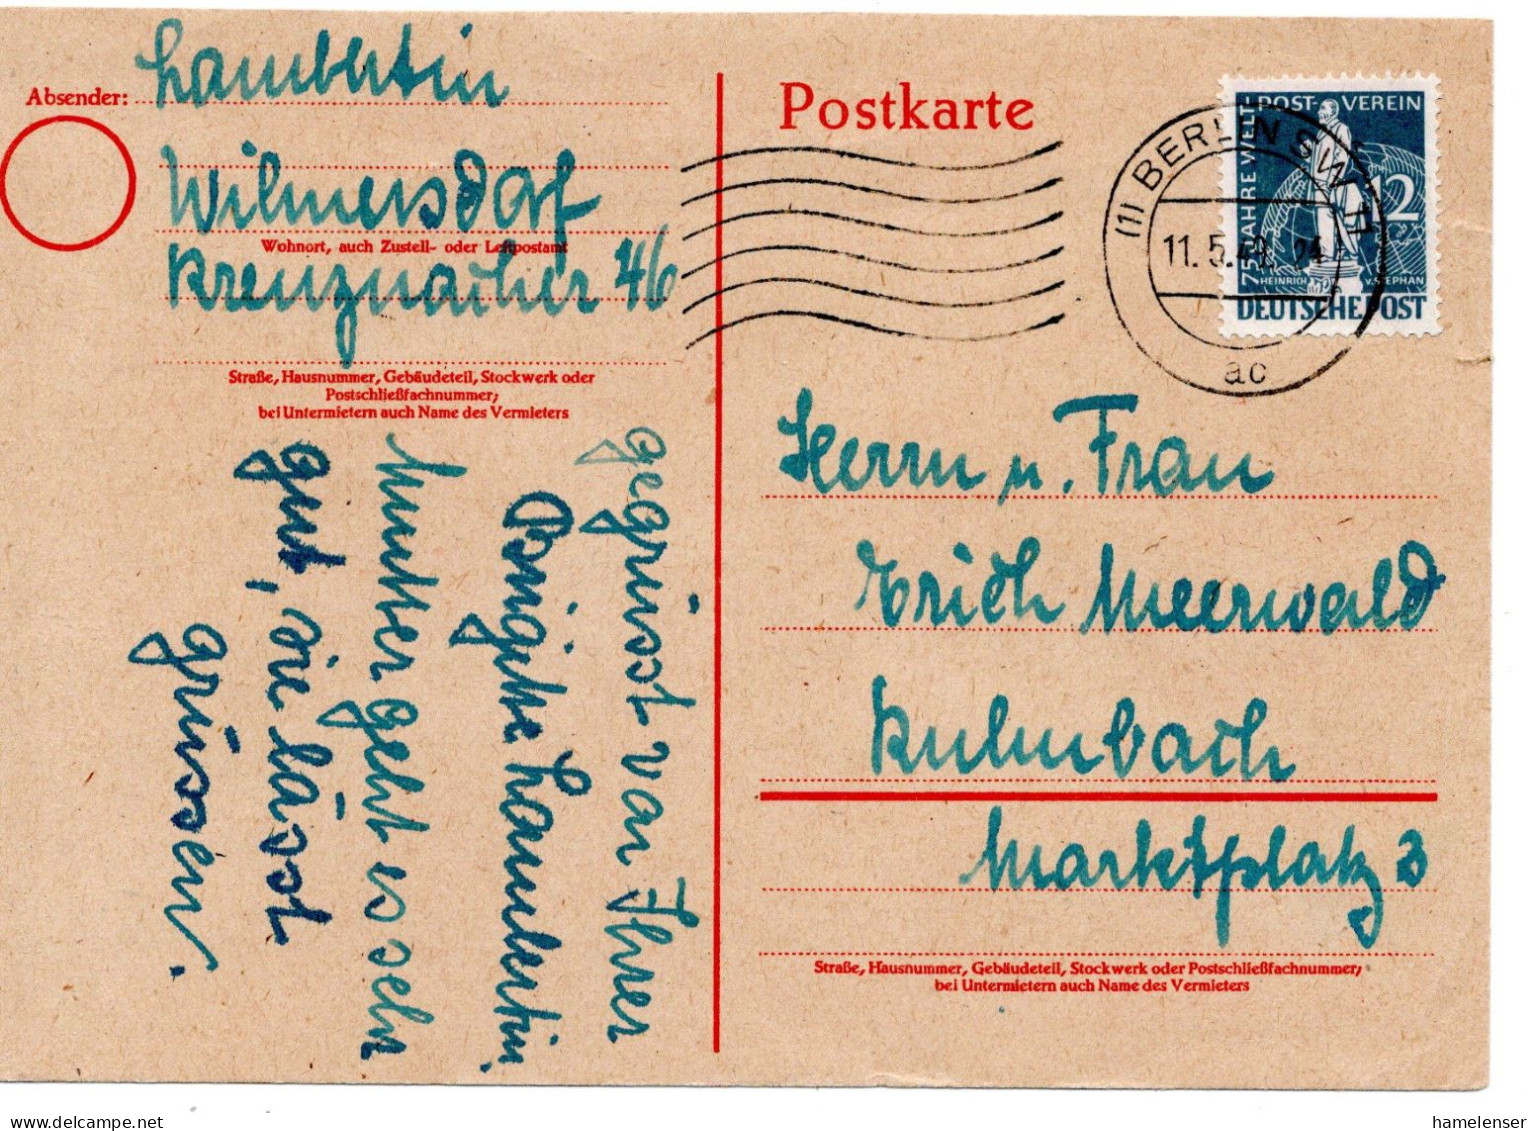 Lambertin
Absender:
Wilmersdorf
Wohnort, auch Zustell- oder Leitpostamt
Kreuznacher 46
Straße, Hausnummer, Gebäudeteil, Stockwerk oder
Postschließfachnummer;
bei Untermietern auch Name des Vermieters
gegrüsst von Ihrer
Brigitte Lambertin
Mutter geht es sehr
gut, sie lässt
grüssen.
Postkarte
75 JAHRE WELT-POST-VEREIN
12
HEINRICH v. STEPHAN
DEUTSCHE POST
(1) BERLIN SW 11
11.5.49. 24
ac
Herrn u. Frau
Erich Meerwald
Kulmbach
Marktplatz 3
Straße, Hausnummer, Gebäudeteil, Stockwerk oder Postschließfachnummer;
bei Untermietern auch Name des Vermieters
hamelenser